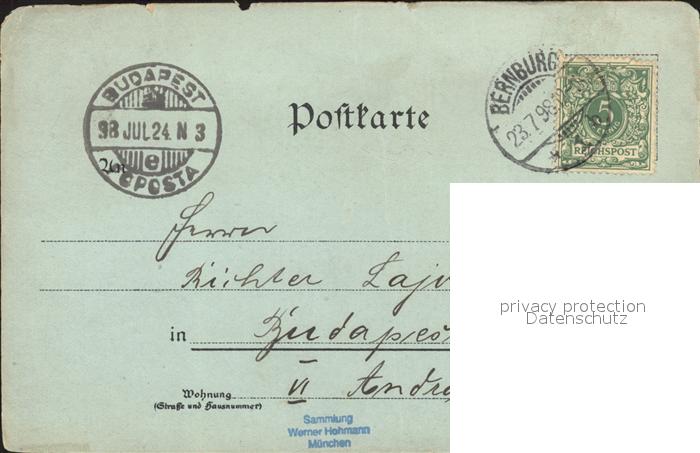 BUDAPEST
98 JUL 24. N 3
e
Postkarte
BERNBURG
23.7.98
5
REICHSPOST
An
Herrn
Richter Lajo
privacy protection
Datenschutz
in Budapes
Wohnung VI Andra
(Straße und Hausnummer)
Sammlung
Werner Hohmann
München